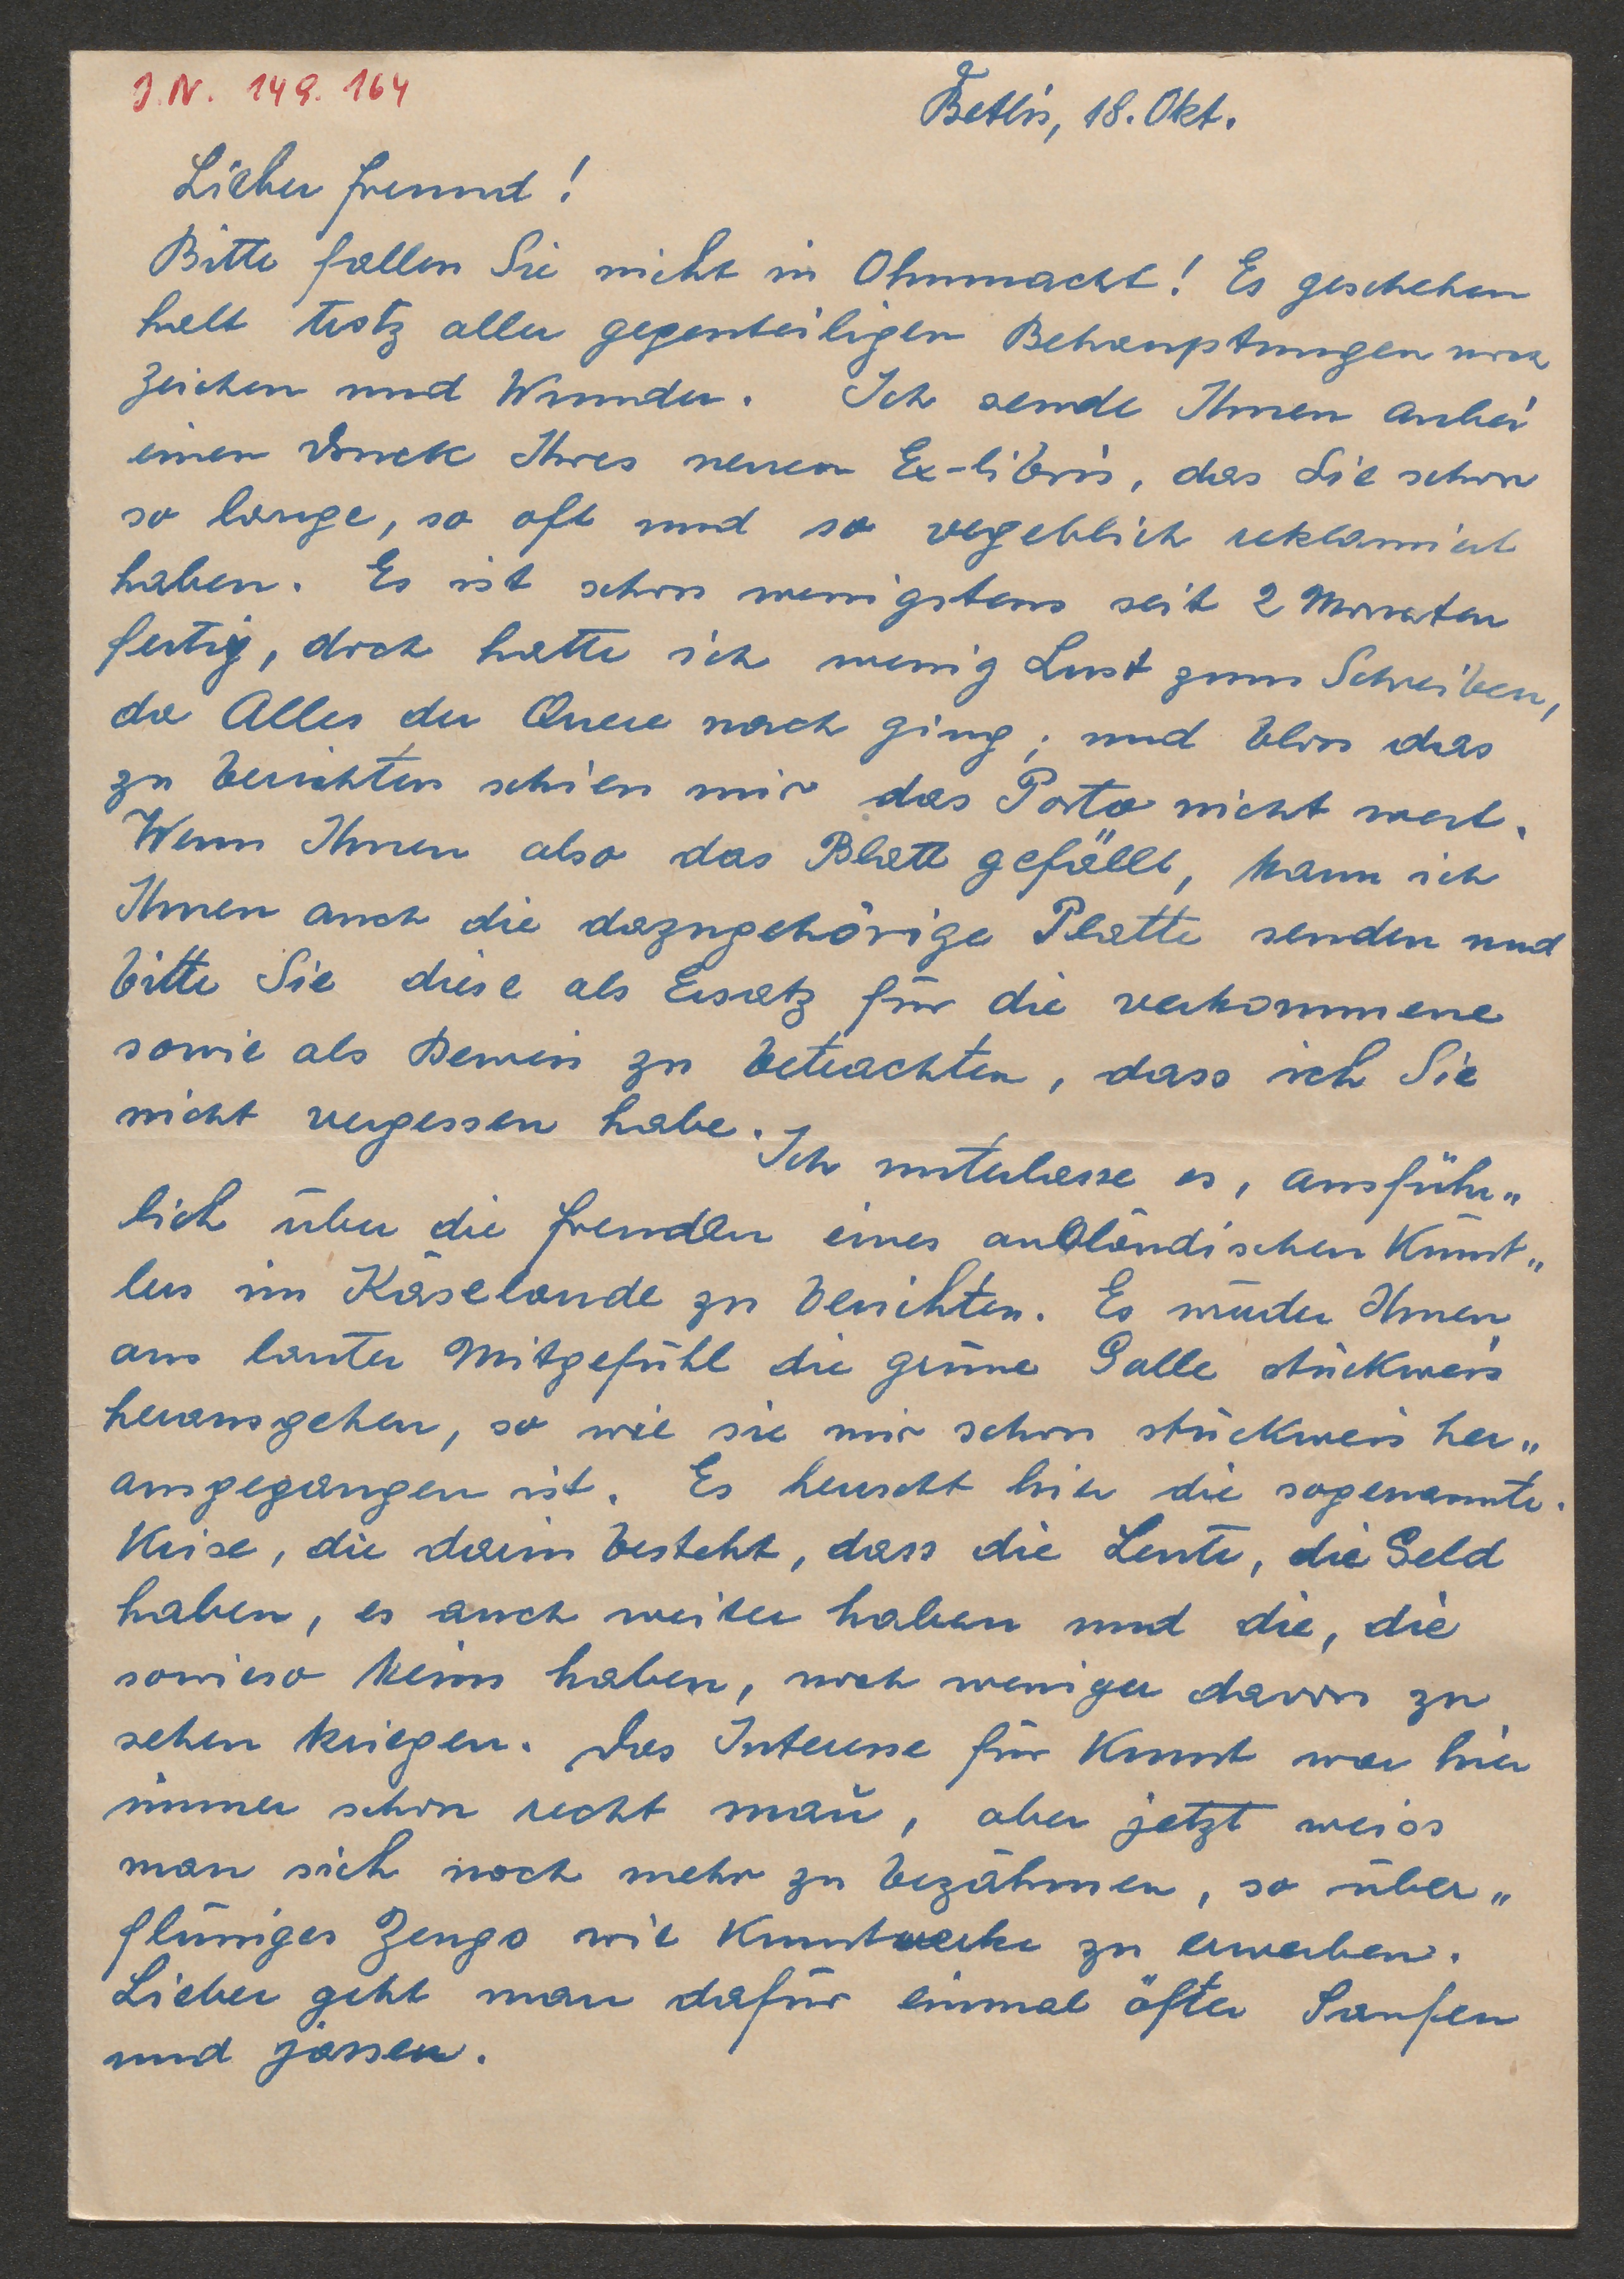 J.N. 149.164
Betlis, 18. Okt.
Lieber Freund!
Bitte fallen Sie nicht in Ohnmacht! Es geschehen
halt trotz aller gegenteiligen Behauptungen noch
Zeichen und Wunder. Ich sende Ihnen anbei
einen Druck Ihres neuen Ex-libris, das Sie schon
so lange, so oft und so vergeblich reklamiert
haben. Es ist schon wenigstens seit 2 Monaten
fertig, doch hatte ich wenig Lust zum Schreiben,
da Alles der Quere nach ging, und blos das
zu berichten schien mir das Porto nicht wert.
Wenn Ihnen also das Blatt gefällt, kann ich
Ihnen auch die dazugehörige Platte senden und
bitte Sie diese als Ersatz für die verkommene
sowie als Beweis zu betrachten, dass ich Sie
nicht vergessen habe. Ich unterlasse es, ausführ„
lich über die Freuden eines ausländischen Künst„
lers im Käselande zu berichten. Es würde Ihnen
aus lauter Mitgefühl die grüne Galle stückweis
herausgehen, so wie sie mir schon stückweis her„
ausgegangen ist. Es herrscht hier die sogenannte
Krise, die darin besteht, dass die Leute, die Geld
haben, es auch weiter haben und die, die
sowieso keins haben, noch weniger davon zu
sehen kriegen. Das Interesse für Kunst war hier
immer schon recht mau, aber jetzt weiss
man sich noch mehr zu bezähmen, so über„
flüssiges Zeugs wie Kunstwerke zu erwerben.
Lieber geht man dafür einmal öfter Saufen
und jassen.